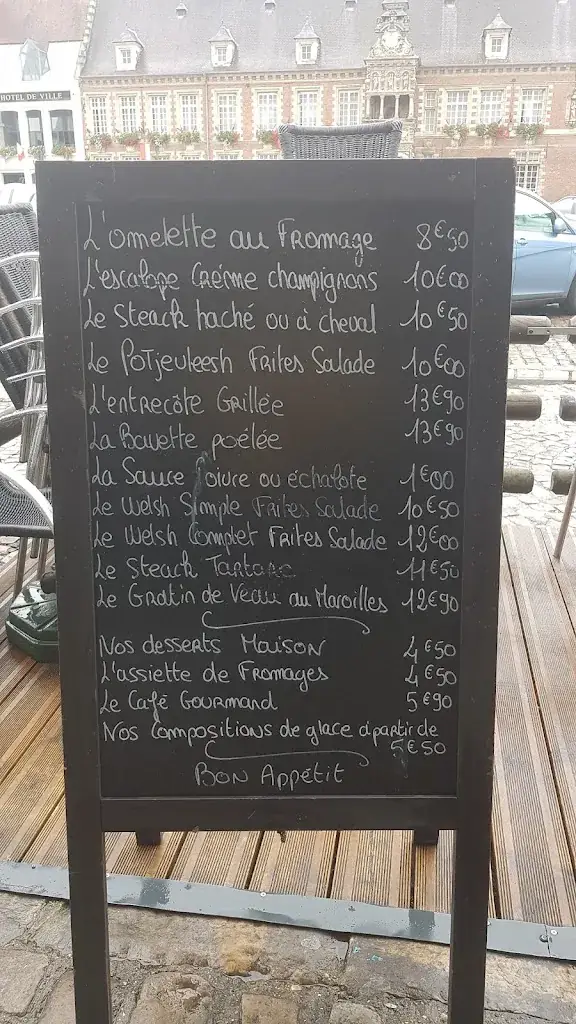 HOTEL DE VILLE
L'omelette au Fromage 8€50
L'escalope Crème champignons 10€00
Le Steack haché ou à cheval 10€50
Le Potjevleesh Frites Salade 10€00
L'entrecôte Grillée 13€90
La Bavette poêlée 13€90
La Sauce Poivre ou échalote 1€00
Le Welsh Simple Frites Salade 10€50
Le Welsh Complet Frites Salade 12€00
Le Steack Tartare 11€50
Le Gratin de Veau au Maroilles 12€90
Nos desserts Maison 4€50
L'assiette de Fromages 4€50
Le Café Gourmand 5€90
Nos Compositions de glace à partir de
5€50
Bon Appétit